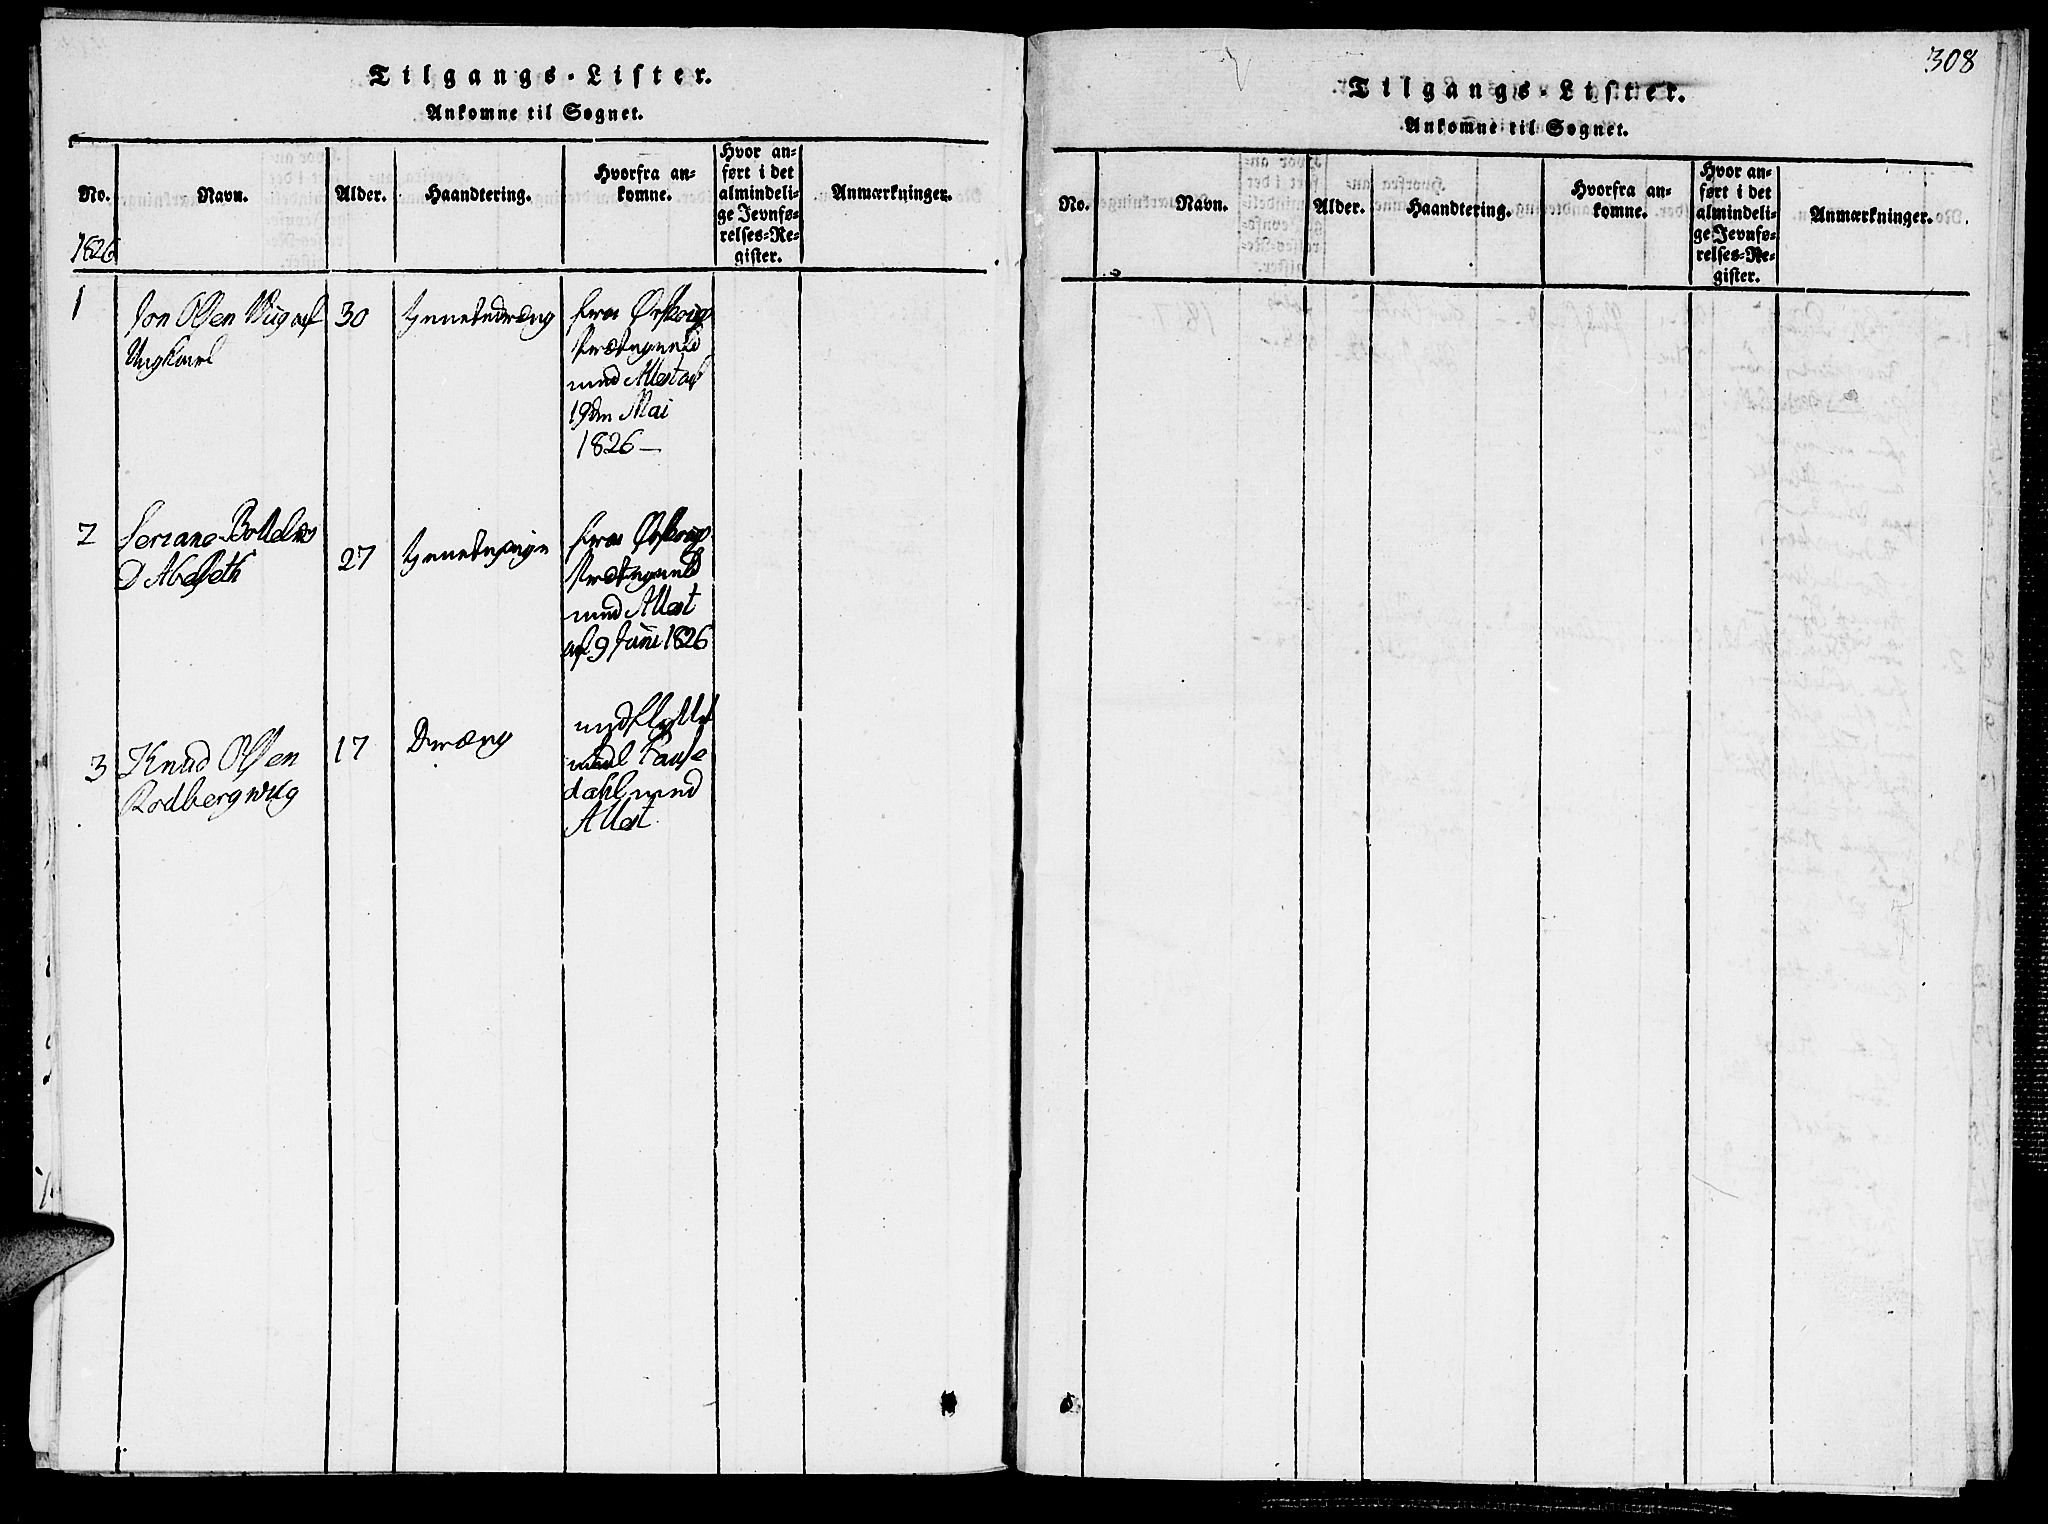 Tilgangs-Lister.
Ankomne til Sognet.
No.
Navn.
Alder.
Haandtering.
Hvorfra an-
komne.
Hvor an-
ført i det
almindeli-
ge Jevnfø-
relses-Re-
gister.
Anmærkninger.
1826
1
Jon Olsen
30
fra Ørskoug
Ungkarl
Præstegield
med Attest af
19den Mai
1826 —
2
27
fra Ørskoug
Præstegield
med Attest
af 9 Juni 1826
3
Knud Olsen
17
Dræng
Rodbergwiig
med
Attest
308
Tilgangs-Lister.
Ankomne til Sognet.
No.
Navn.
Alder.
Haandtering.
Hvorfra an-
komne.
Hvor an-
ført i det
almindeli-
ge Jevnfø-
relses-Re-
gister.
Anmærkninger.